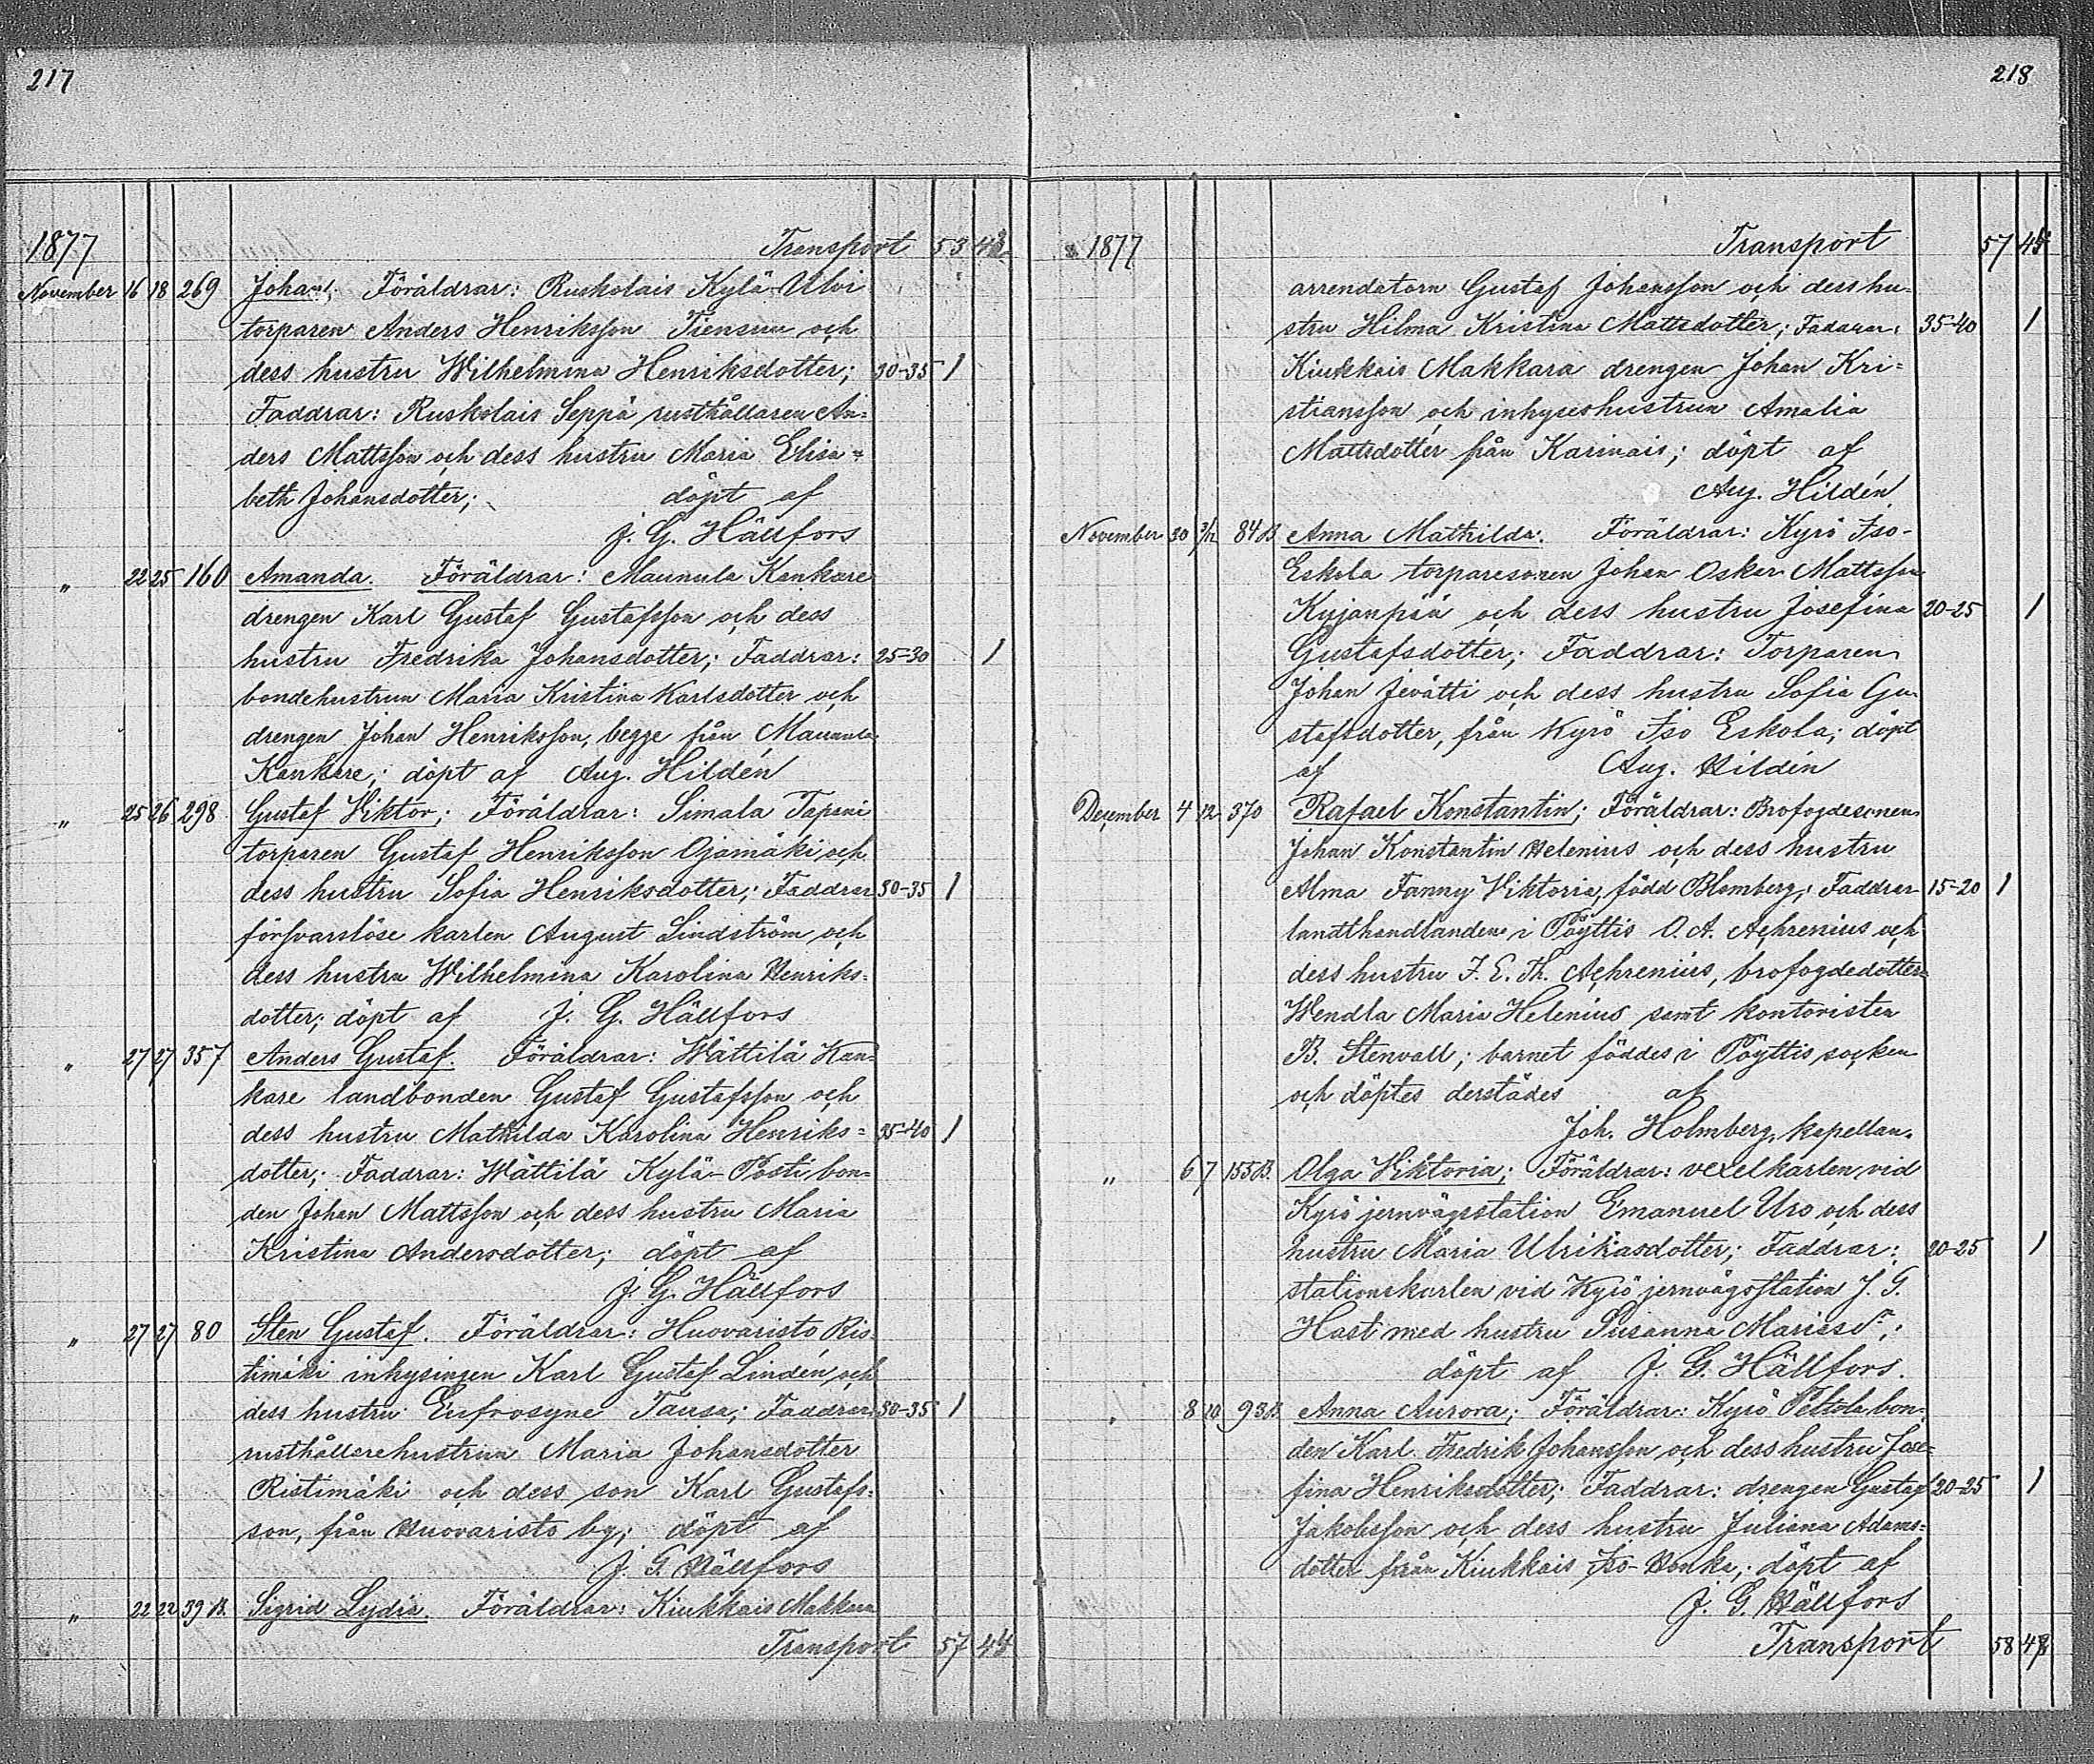 217
1877 Transport 53 43
November 16 18 269 Johan; Föräldrar: Ruskolais Kylä-Ulvi
torparen Anders Henriksson Tiensuu och
dess hustru Wilhelmina Henriksdotter; 30-35 1
Faddrar: Ruskolais Seppä rusthållaren An=
ders Mattsson och dess hustru Maria Elisa=
beth Johansdotter; döpt af
J. G. Hällfors
" 22 25 160 Amanda. Föräldrar: Maunula Kankare
drengen Karl Gustaf Gustafsson och dess
hustru Fredrika Johansdotter; Faddrar: 25-30 1
bondehustrun Maria Kristina Karlsdotter och
drengen Johan Henriksson, begge från Maunula
Kankare; döpt af Aug. Hildén
" 25 26 298 Gustaf Viktor; Föräldrar: Simala Tapani
torparen Gustaf Henriksson Ojamäki och
dess hustru Sofia Henriksdotter; Faddrar 30-35 1
försvarslöse karlen August Lindström och
dess hustru Wilhelmina Karolina Henriks=
dotter; döpt af J. G. Hällfors
" 27 27 357 Anders Gustaf. Föräldrar: Wättilä Kan=
kare landbonden Gustaf Gustafsson och
dess hustru Mathilda Karolina Henriks= 35-40 1
dotter; Faddrar: Wättilä Kylä-Posti bon=
den Johan Mattsson och dess hustru Maria
Kristina Andersdotter; döpt af
J. G. Hällfors
" 27 27 80 Sten Gustaf. Föräldrar: Huovaristo Ris=
timäki inhysingen Karl Gustaf Lindén och
dess hustru Eufrosyne Tausa; Faddrar: 30-35 1
rusthållarehustrun Maria Johansdotter
Ristimäki och dess son Karl Gustafs=
son, från Huovaristo by; döpt af
J. G. Hällfors
" 22 22 39 B. Sigrid Lydia. Föräldrar: Kiukkais Makkara
Transport 57 44
218
1877 Transport 57 44
arrendatorn Gustaf Johansson och dess hu=
stru Hilma Kristina Mattsdotter; Faddrar: 35-40 1
Kiukkais Makkara drengen Johan Kri=
stiansson och inhyseshustrun Amalia
Mattsdotter från Karinais; döpt af
Aug. Hildén
November 30 3/12 84 B Anna Mathilda. Föräldrar: Kyrö Iso-
Eskola torparesonen Johan Oskar Mattsson
Kujanpää och dess hustru Josefina 20-25 1
Gustafsdotter; Faddrar: Torparen
Johan Jevätti och dess hustru Sofia Gu=
stafsdotter, från Kyrö Iso Eskola; döpt
af Aug. Hildén
December 4 12 370 Rafael Konstantin; Föräldrar: Brofogdesonen
Johan Konstantin Helenius och dess hustru
Alma Fanny Viktoria, född Blomberg; Faddrar 15-20 1
landthandlanden i Pöyttis O. A. Achrenius och
dess hustru F. E. Th. Achrenius, brofogdedotter
Wendla Maria Helenius samt kontoristen
B. Stenvall; barnet föddes i Pöyttis socken
och döptes derstädes af
Joh. Holmberg, kapellan.
" 6 7 155 B. Olga Viktoria; Föräldrar: vexelkarlen vid
Kyrö jernvägsstation Emanuel Uro och dess
hustru Maria Ulrikasdotter; Faddrar: 20-25 1
stationskarlen vid Kyrö jernvägsstation J. G.
Hast med hustru Susanna Mariasdr;
döpt af J. G. Hällfors.
" 8 10 93 B Anna Aurora; Föräldrar: Kyrö Peltola bon=
den Karl Fredrik Johansson och dess hustru Jose=
fina Henriksdotter; Faddrar: drengen Gustaf 20-25 1
Jakobsson och dess hustru Juliana Adams=
dotter från Kiukkais Iso-Honka; döpt af
J. G. Hällfors
Transport 58 48